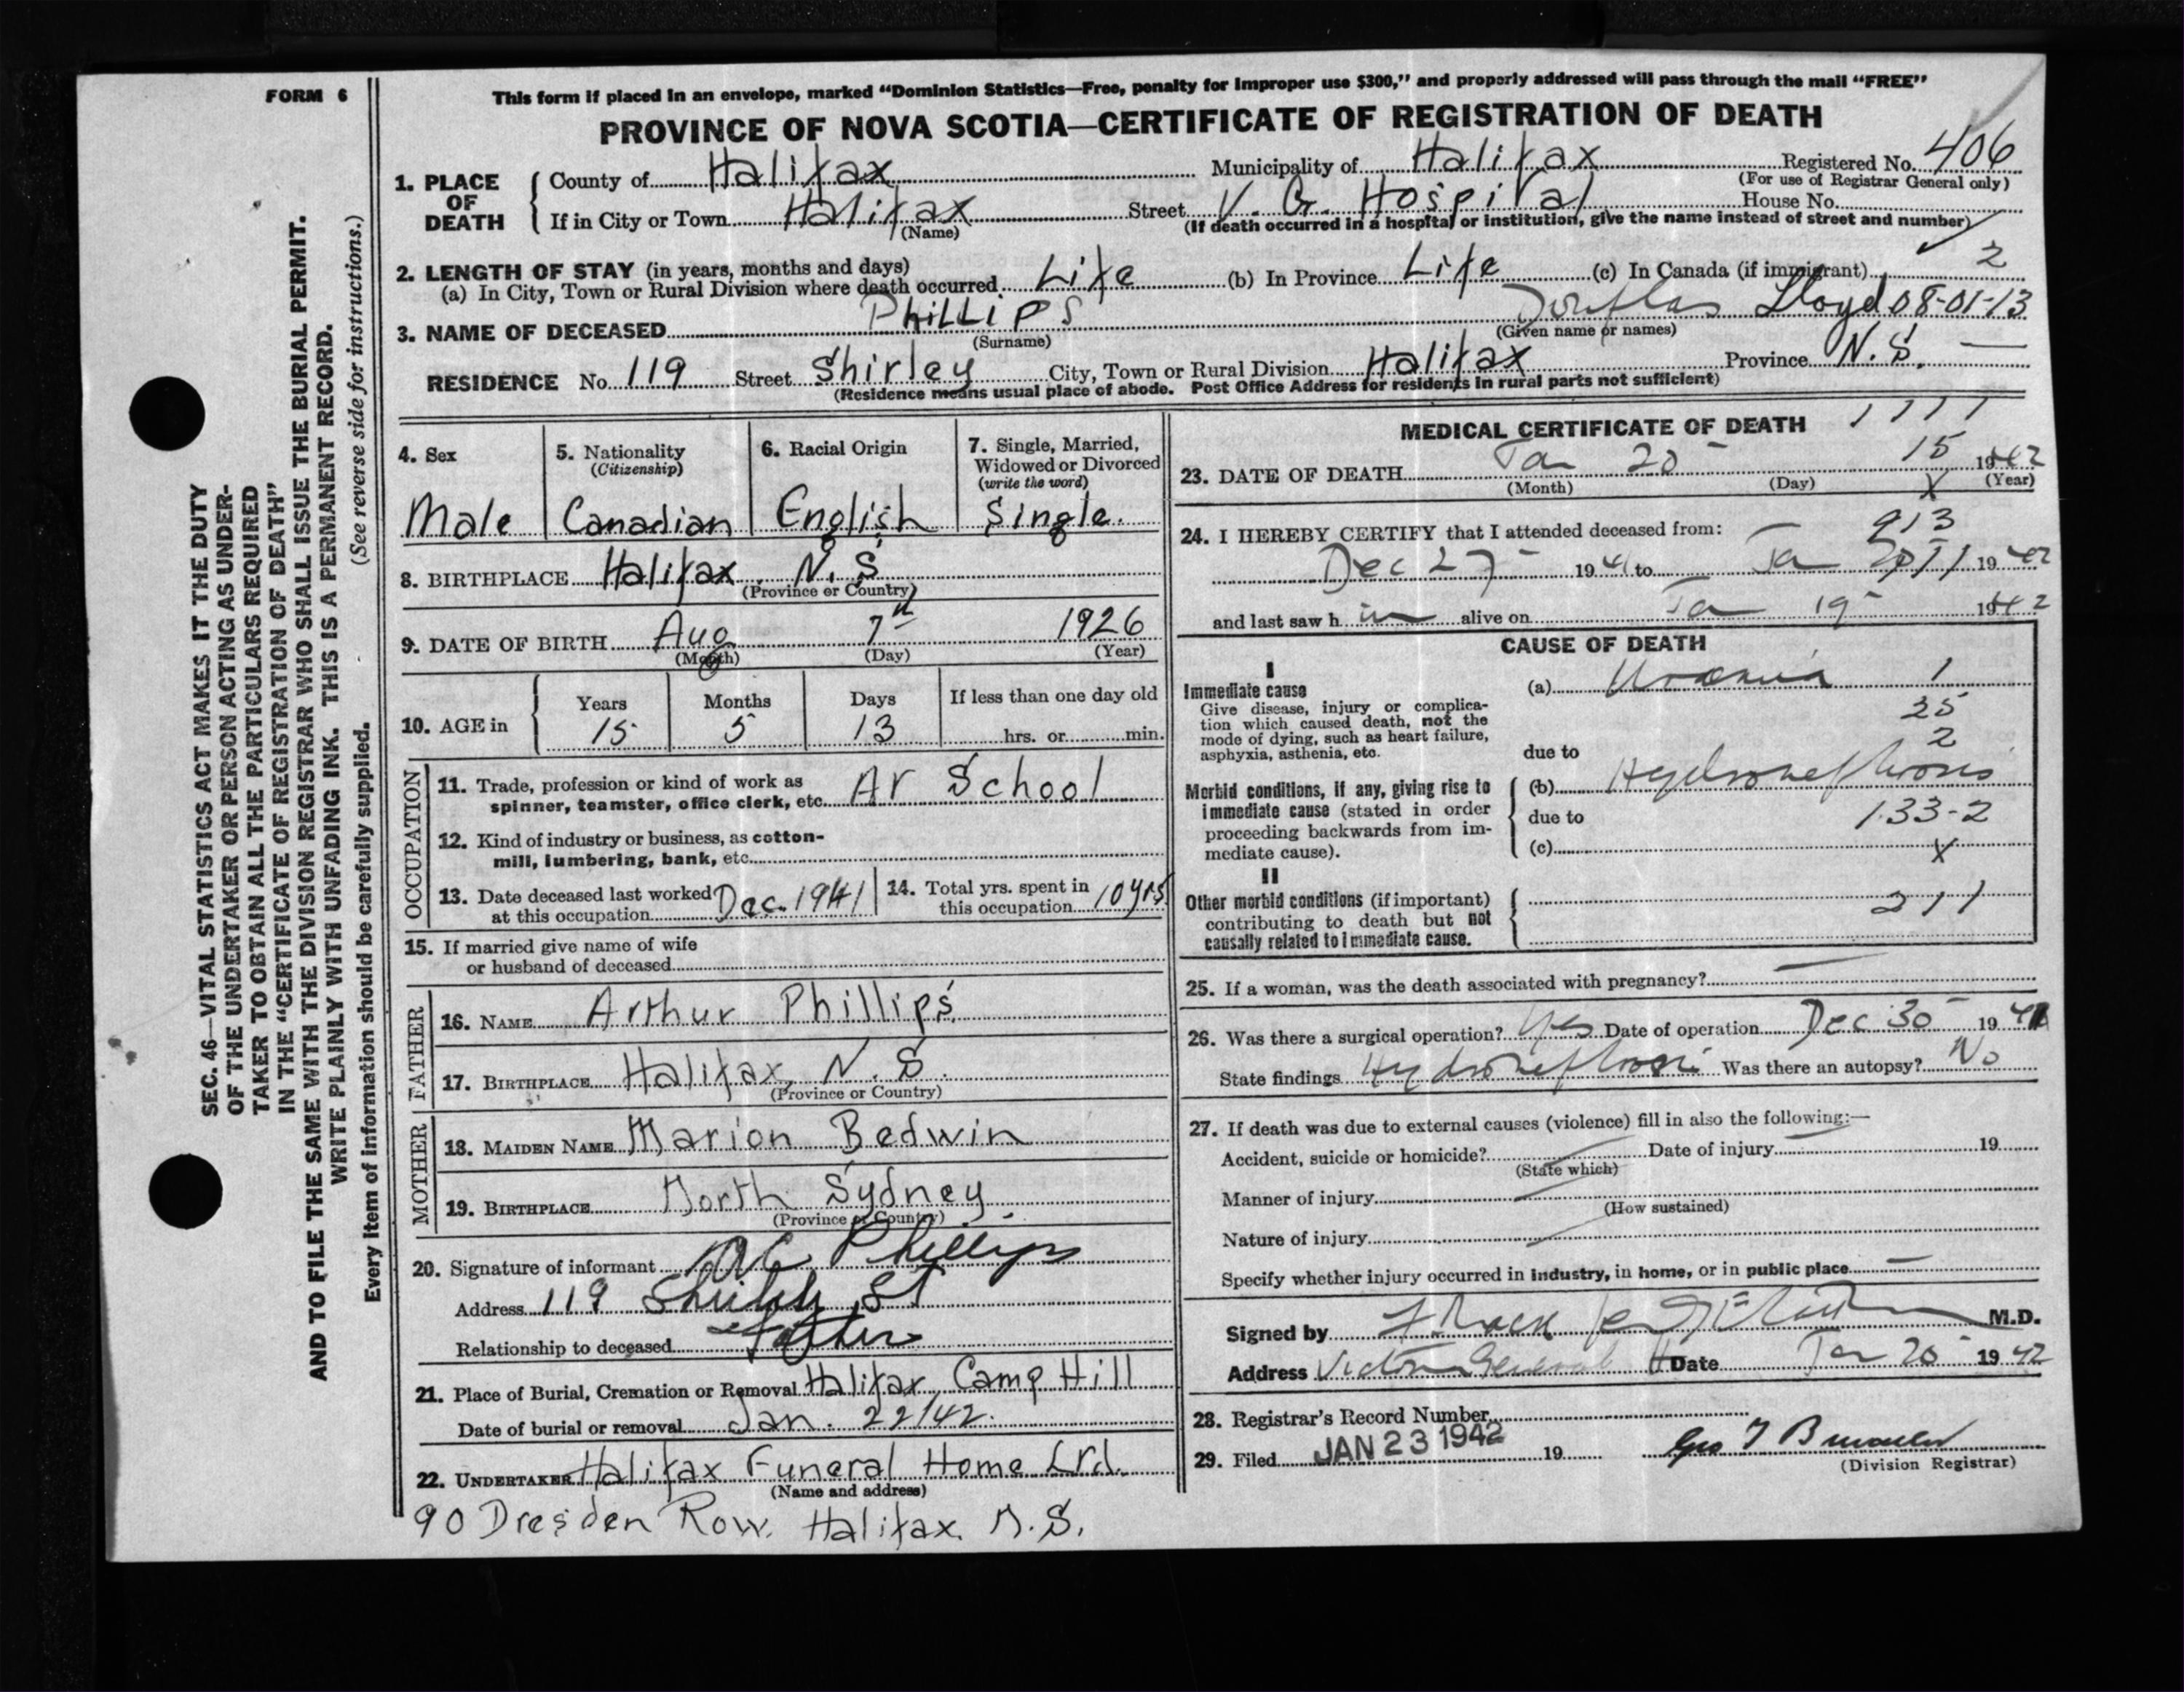 FORM 6
SEC. 46—VITAL STATISTICS ACT MAKES IT THE DUTY
OF THE UNDERTAKER OR PERSON ACTING AS UNDER-
TAKER TO OBTAIN ALL THE PARTICULARS REQUIRED
IN THE "CERTIFICATE OF REGISTRATION OF DEATH"
AND TO FILE THE SAME WITH THE DIVISION REGISTRAR WHO SHALL ISSUE THE BURIAL PERMIT.
WRITE PLAINLY WITH UNFADING INK. THIS IS A PERMANENT RECORD.
Every item of information should be carefully supplied. (See reverse side for instructions.)
This form if placed in an envelope, marked "Dominion Statistics—Free, penalty for improper use $300," and properly addressed will pass through the mail "FREE"
PROVINCE OF NOVA SCOTIA—CERTIFICATE OF REGISTRATION OF DEATH
1. PLACE OF DEATH
County of Halifax Municipality of Halifax Registered No. 406
(For use of Registrar General only)
If in City or Town Halifax Street V. G. Hospital House No.
(Name) (If death occurred in a hospital or institution, give the name instead of street and number)
2. LENGTH OF STAY (in years, months and days)
(a) In City, Town or Rural Division where death occurred Life (b) In Province Life (c) In Canada (if immigrant) 2
3. NAME OF DECEASED Phillips Douglas Lloyd 08-01-13
(Surname) (Given name or names)
RESIDENCE No. 119 Street Shirley City, Town or Rural Division Halifax Province N.S.
(Residence means usual place of abode. Post Office Address for residents in rural parts not sufficient)
4. Sex
Male
5. Nationality
(Citizenship)
Canadian
6. Racial Origin
English
7. Single, Married,
Widowed or Divorced
(write the word)
Single.
8. BIRTHPLACE Halifax, N.S
(Province or Country)
9. DATE OF BIRTH Aug 7th 1926
(Month) (Day) (Year)
10. AGE in
Years Months Days If less than one day old
15 5 13 hrs. or min.
OCCUPATION
11. Trade, profession or kind of work as
spinner, teamster, office clerk, etc. At School
12. Kind of industry or business, as cotton-
mill, lumbering, bank, etc.
13. Date deceased last worked
at this occupation Dec. 1941
14. Total yrs. spent in
this occupation 10 yrs
15. If married give name of wife
or husband of deceased
FATHER
16. NAME Arthur Phillips
17. BIRTHPLACE Halifax, N.S.
(Province or Country)
MOTHER
18. MAIDEN NAME Marion Bedwin
19. BIRTHPLACE North Sydney
(Province or Country)
20. Signature of informant Phillips
Address 119 Shirley St
Relationship to deceased Father
21. Place of Burial, Cremation or Removal Halifax, Camp Hill
Date of burial or removal Jan. 22/42.
22. UNDERTAKER Halifax Funeral Home Ltd.
(Name and address)
90 Dresden Row. Halifax. N.S.
MEDICAL CERTIFICATE OF DEATH 1111
23. DATE OF DEATH Jan 20 15 1942
(Month) (Day) (Year)
X
24. I HEREBY CERTIFY that I attended deceased from: 913
Dec 27 1941 to Jan 1942
and last saw h im alive on Jan 19 1942
CAUSE OF DEATH
I
Immediate cause
Give disease, injury or complica-
tion which caused death, not the
mode of dying, such as heart failure,
asphyxia, asthenia, etc.
(a) Uraemia 1
25
2
due to
Morbid conditions, if any, giving rise to
immediate cause (stated in order
proceeding backwards from im-
mediate cause).
(b) Hydronephrosis
due to 133-2
(c) X
II
Other morbid conditions (if important)
contributing to death but not
causally related to immediate cause.
211
25. If a woman, was the death associated with pregnancy?
26. Was there a surgical operation? Yes Date of operation Dec 30 1941
State findings Hydronephrosis Was there an autopsy? No
27. If death was due to external causes (violence) fill in also the following:—
Accident, suicide or homicide? Date of injury 19
(State which)
Manner of injury
(How sustained)
Nature of injury
Specify whether injury occurred in industry, in home, or in public place
Signed by M.D.
Address Victoria General H Date Jan 20 1942
28. Registrar's Record Number
29. Filed JAN 23 1942 19
(Division Registrar)